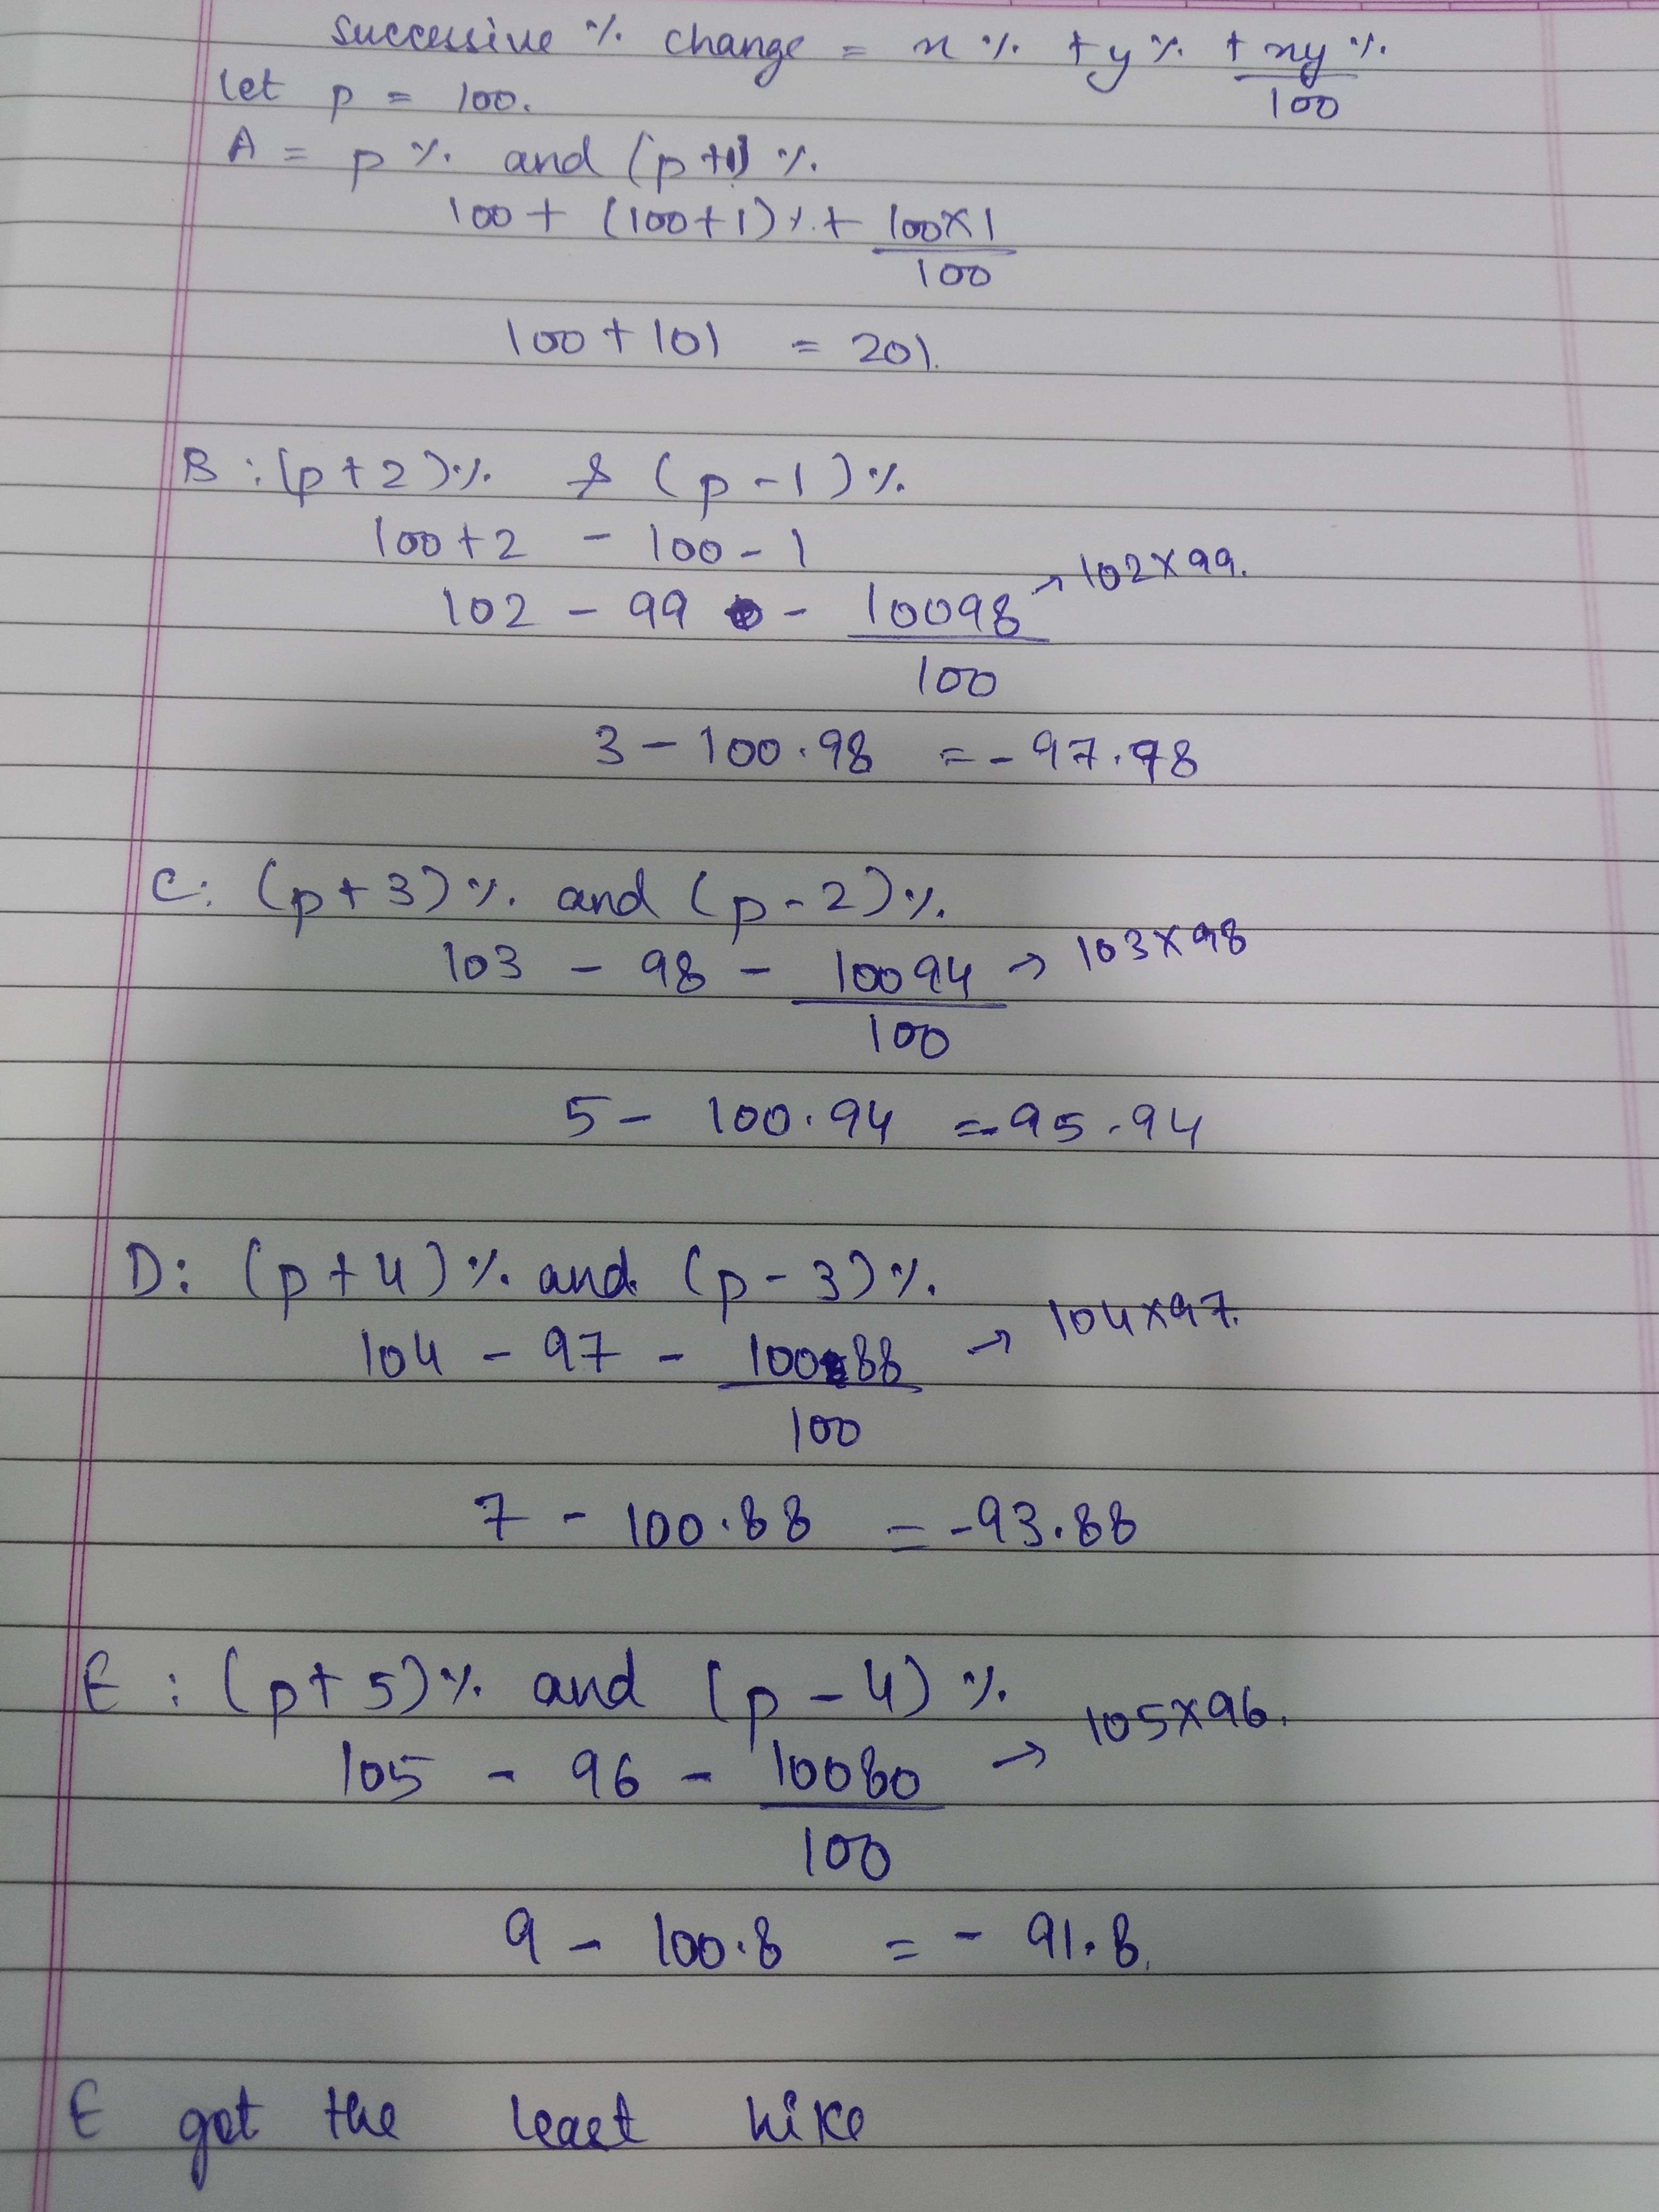 successive % change = x % + y % + xy %
100
let p = 100.
A = p % and (p+1) %
100 + (100+1) % + 100×1
100
100 + 101 = 201.
B : (p+2)% & (p-1)%
100+2 - 100-1
102 - 99 - 10098 → 102×99.
100
3 - 100.98 = - 97.98
C: (p+3)% and (p-2)%
103 - 98 - 10094 → 103×98
100
5 - 100.94 = - 95.94
D: (p+4)% and (p-3)%
104 - 97 - 10088 → 104×97.
100
7 - 100.88 = - 93.88
E : (p+5)% and (p-4) %
105 - 96 - 10080 → 105×96.
100
9 - 100.8 = - 91.8.
E got the least hike